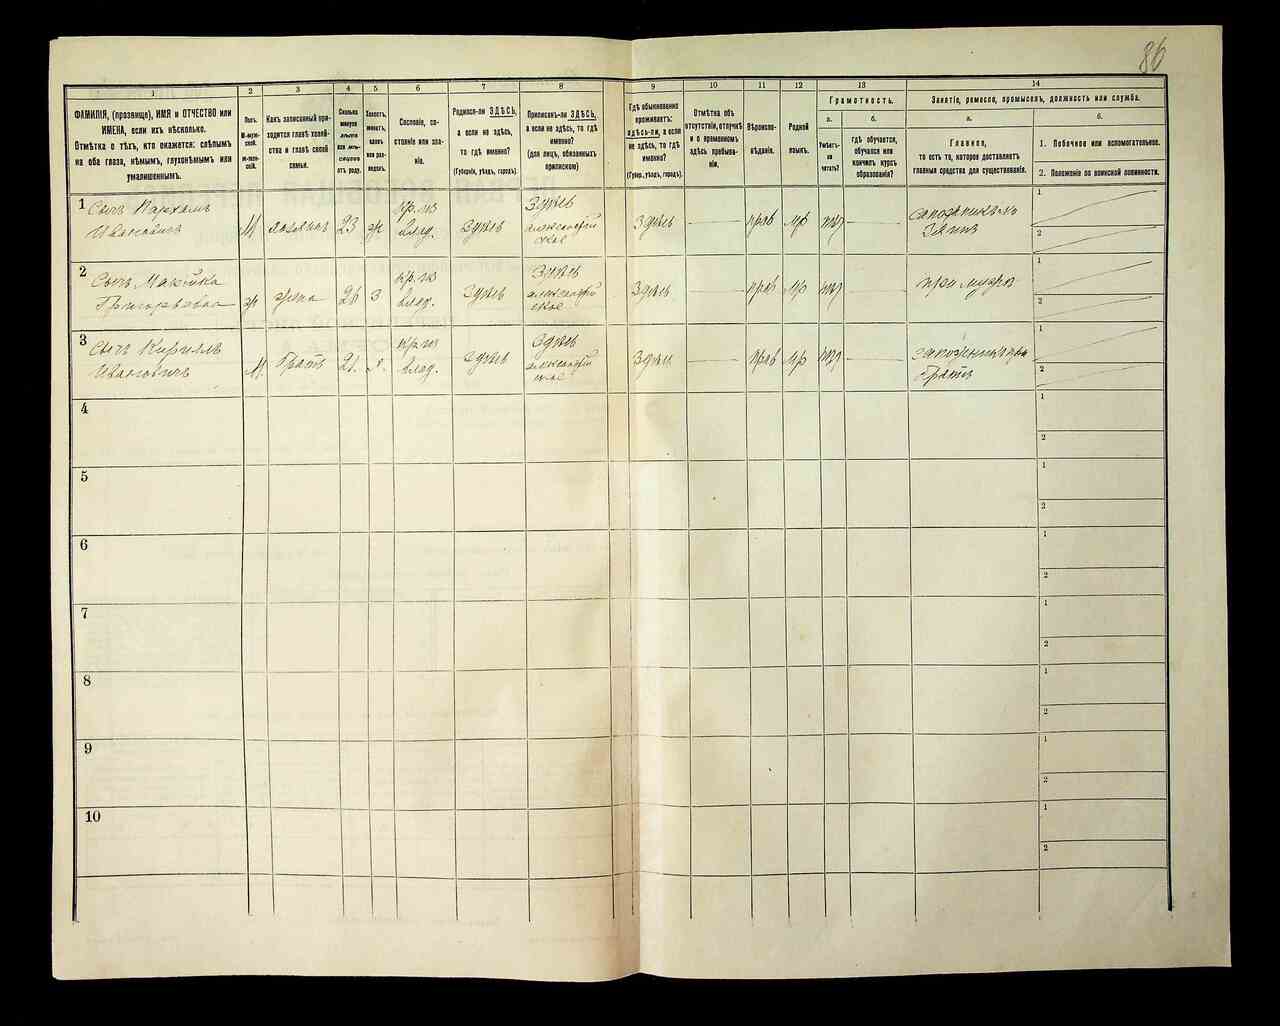 86
1
ФАМИЛІЯ, (прозвище), ИМЯ и ОТЧЕСТВО или
ИМЕНА, если ихъ нѣсколько.
Отмѣтка о тѣхъ, кто окажется: слѣпымъ
на оба глаза, нѣмымъ, глухонѣмымъ или
умалишеннымъ.
2
Полъ.
М-муж-
ской.
Ж-жен-
скій.
3
Какъ записанный при-
ходится главѣ хозяй-
ства и главѣ своей
семьи.
4
Сколько
минуло
лѣтъ
или мѣ-
сяцевъ
отъ роду.
5
Холостъ,
женатъ,
вдовъ
или раз-
веденъ.
6
Сословіе, со-
стояніе или зва-
ніе.
7
Родился-ли ЗДѢСЬ,
а если не здѣсь,
то гдѣ именно?
(Губернія, уѣздъ, городъ).
8
Приписанъ-ли ЗДѢСЬ,
а если не здѣсь, то гдѣ
именно?
(для лицъ, обязанныхъ
припискою)
9
Гдѣ обыкновенно
проживаетъ:
здѣсь-ли, а если
не здѣсь, то гдѣ
именно?
(Губер., уѣздъ, городъ).
10
Отмѣтка объ
отсутствіи, отлучкѣ
и о временномъ
здѣсь пребыва-
ніи.
11
Вѣроиспо-
вѣданіе.
12
Родной
языкъ.
13
Грамотность.
а.
Умѣетъ-
ли
читать?
б.
гдѣ обучается,
обучался или
кончилъ курсъ
образованія?
14
Занятіе, ремесло, промыселъ, должность или служба.
а.
Главное,
то есть то, которое доставляетъ
главныя средства для существованія.
б.
1. Побочное или вспомогательное.
2. Положеніе по воинской повинности.
1
Сычъ Пархомъ
Ивановичъ
М
хозяинъ
23
ж
кр. из
влад.
Здѣсь
Здѣсь
Здѣсь
прав
мр
нѣт
1
2
2
Сычъ
Григорьевна
ж
жена
21
з
кр. из
влад.
Здѣсь
Здѣсь
Здѣсь
прав
мр
при мужѣ
1
2
3
Сычъ Кирилъ
Ивановичъ
М.
братъ
21.
х.
кр. из
влад.
Здѣсь
Здѣсь
Здѣсь
прав
мр
нѣт
братѣ
1
2
4
1
2
5
1
2
6
1
2
7
1
2
8
1
2
9
1
2
10
1
2